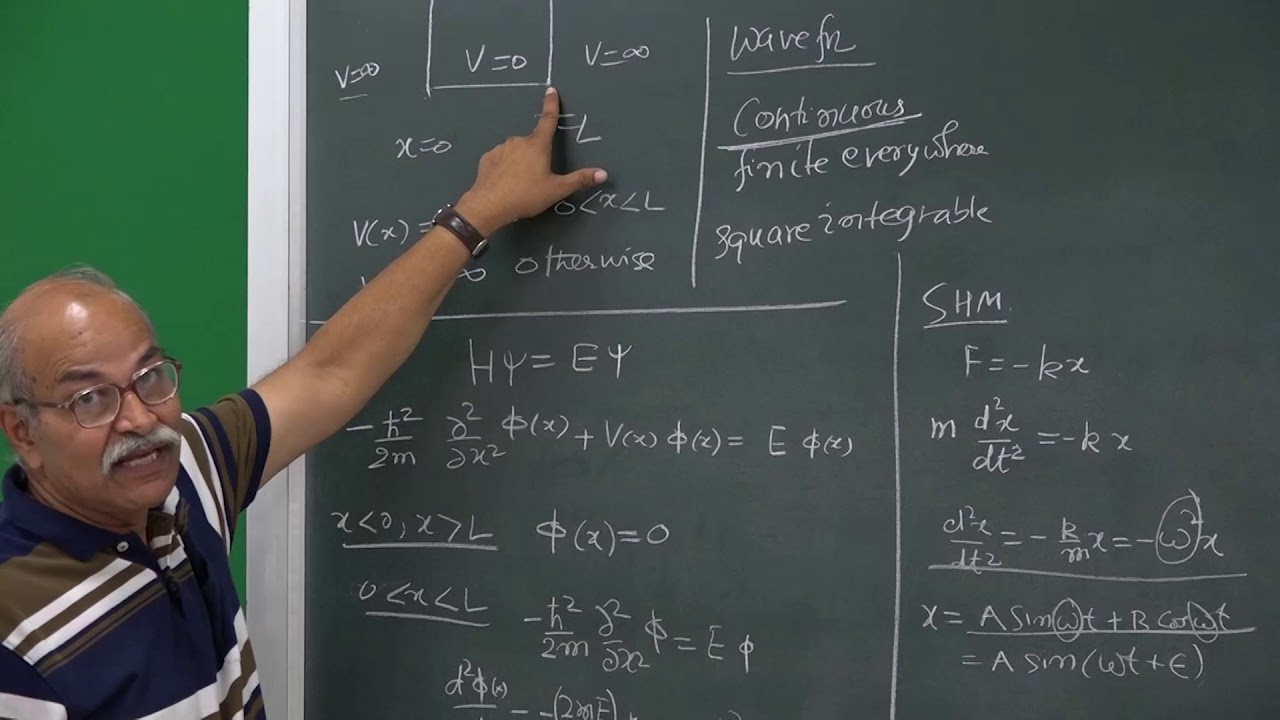 V=∞
V=0
V=∞
x=0
=L
V(x)=
0<x<L
∞ otherwise
Wavefn
Continuous
finite everywhere
square integrable
Hψ=Eψ
-ħ²/2m ∂²/∂x² ϕ(x)+V(x) ϕ(x)= E ϕ(x)
x<0, x>L ϕ(x)=0
0<x<L -ħ²/2m ∂²/∂x² ϕ=E ϕ
SHM
F=-kx
m d²x/dt²=-kx
d²x/dt²=-k/m x=-ω²x
x=A Sin ωt+B Cos ωt
=A sin(ωt+ϵ)